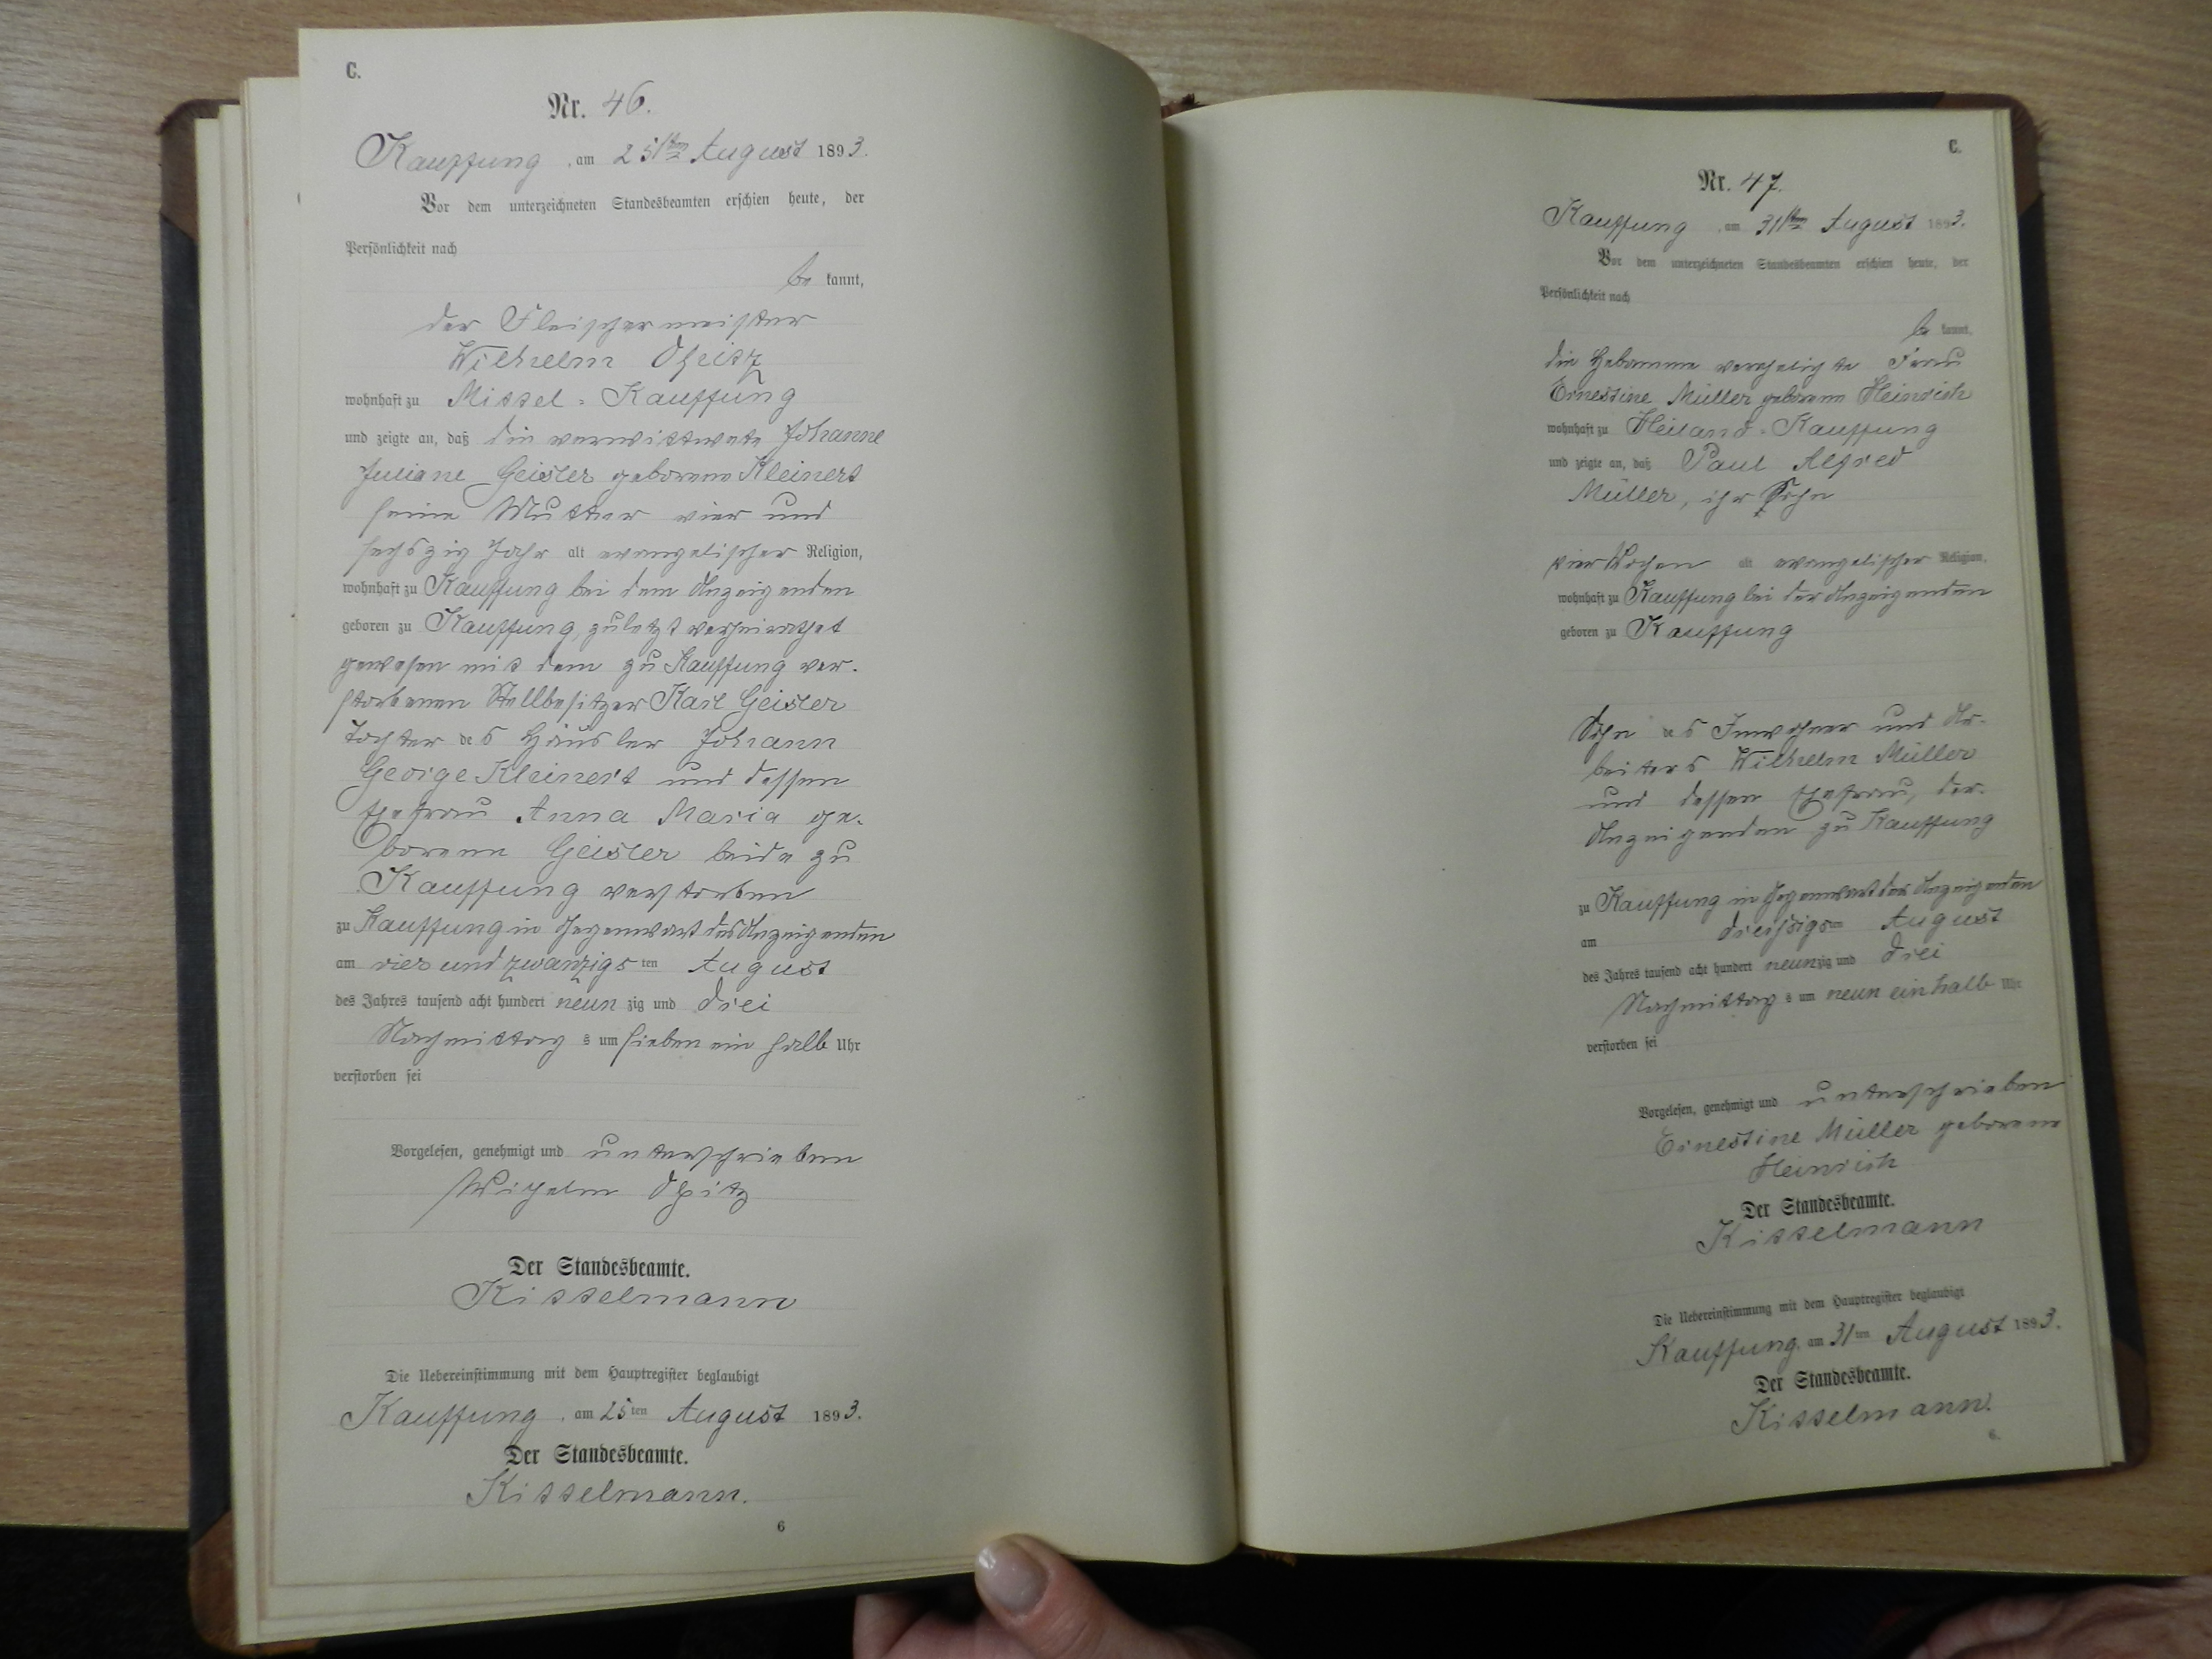 C.
Nr. 46.
Kauffung, am 25ten August 1893.
Vor dem unterzeichneten Standesbeamten erschien heute, der
Persönlichkeit nach
be kannt,
der Fleischermeister
Wilhelm Opitz
wohnhaft zu Mittel-Kauffung
und zeigte an, daß die verwittwete Johanne
Juliane Geisler geborene Kleinert
seine Mutter vier und
sechszig Jahr alt evangelischer Religion,
wohnhaft zu Kauffung bei dem Anzeigenden
geboren zu Kauffung, zuletzt verheirathet
gewesen mit dem zu Kauffung ver-
storbenen Stellbesitzer Karl Geisler
Tochter des Häusler Johann
George Kleinert und dessen
Ehefrau Anna Maria ge-
borene Geisler beide zu
Kauffung verstorben
zu Kauffung in Gegenwart des Anzeigenden
am vier und zwanzigsten August
des Jahres tausend acht hundert neun zig und drei
Nachmittag s um sieben ein halb Uhr
verstorben sei
Vorgelesen, genehmigt und unterschrieben
Wilhelm Opitz
Der Standesbeamte.
Kisselmann
Die Uebereinstimmung mit dem Hauptregister beglaubigt
Kauffung, am 25ten August 1893.
Der Standesbeamte.
Kisselmann.
6
C.
Nr. 47.
Kauffung, am 31ten August 1893.
Vor dem unterzeichneten Standesbeamten erschien heute, der
Persönlichkeit nach
be kannt,
die Hebamme verehelichte Frau
Ernestine Müller geborene Heinrich
wohnhaft zu Heiland-Kauffung
und zeigte an, daß Paul Alfred
Müller, ihr Sohn
vier Wochen alt evangelischer Religion,
wohnhaft zu Kauffung bei der Anzeigenden
geboren zu Kauffung
Sohn des Inwohner und Ar-
beiters Wilhelm Müller
und dessen Ehefrau, der
Anzeigenden zu Kauffung
zu Kauffung in Gegenwart der Anzeigenden
am dreißigsten August
des Jahres tausend acht hundert neunzig und drei
Nachmittag s um neun ein halb Uhr
verstorben sei
Vorgelesen, genehmigt und unterschrieben
Ernestine Müller geborene
Heinrich
Der Standesbeamte.
Kisselmann
Die Uebereinstimmung mit dem Hauptregister beglaubigt
Kauffung, am 31ten August 1893.
Der Standesbeamte.
Kisselmann.
6.